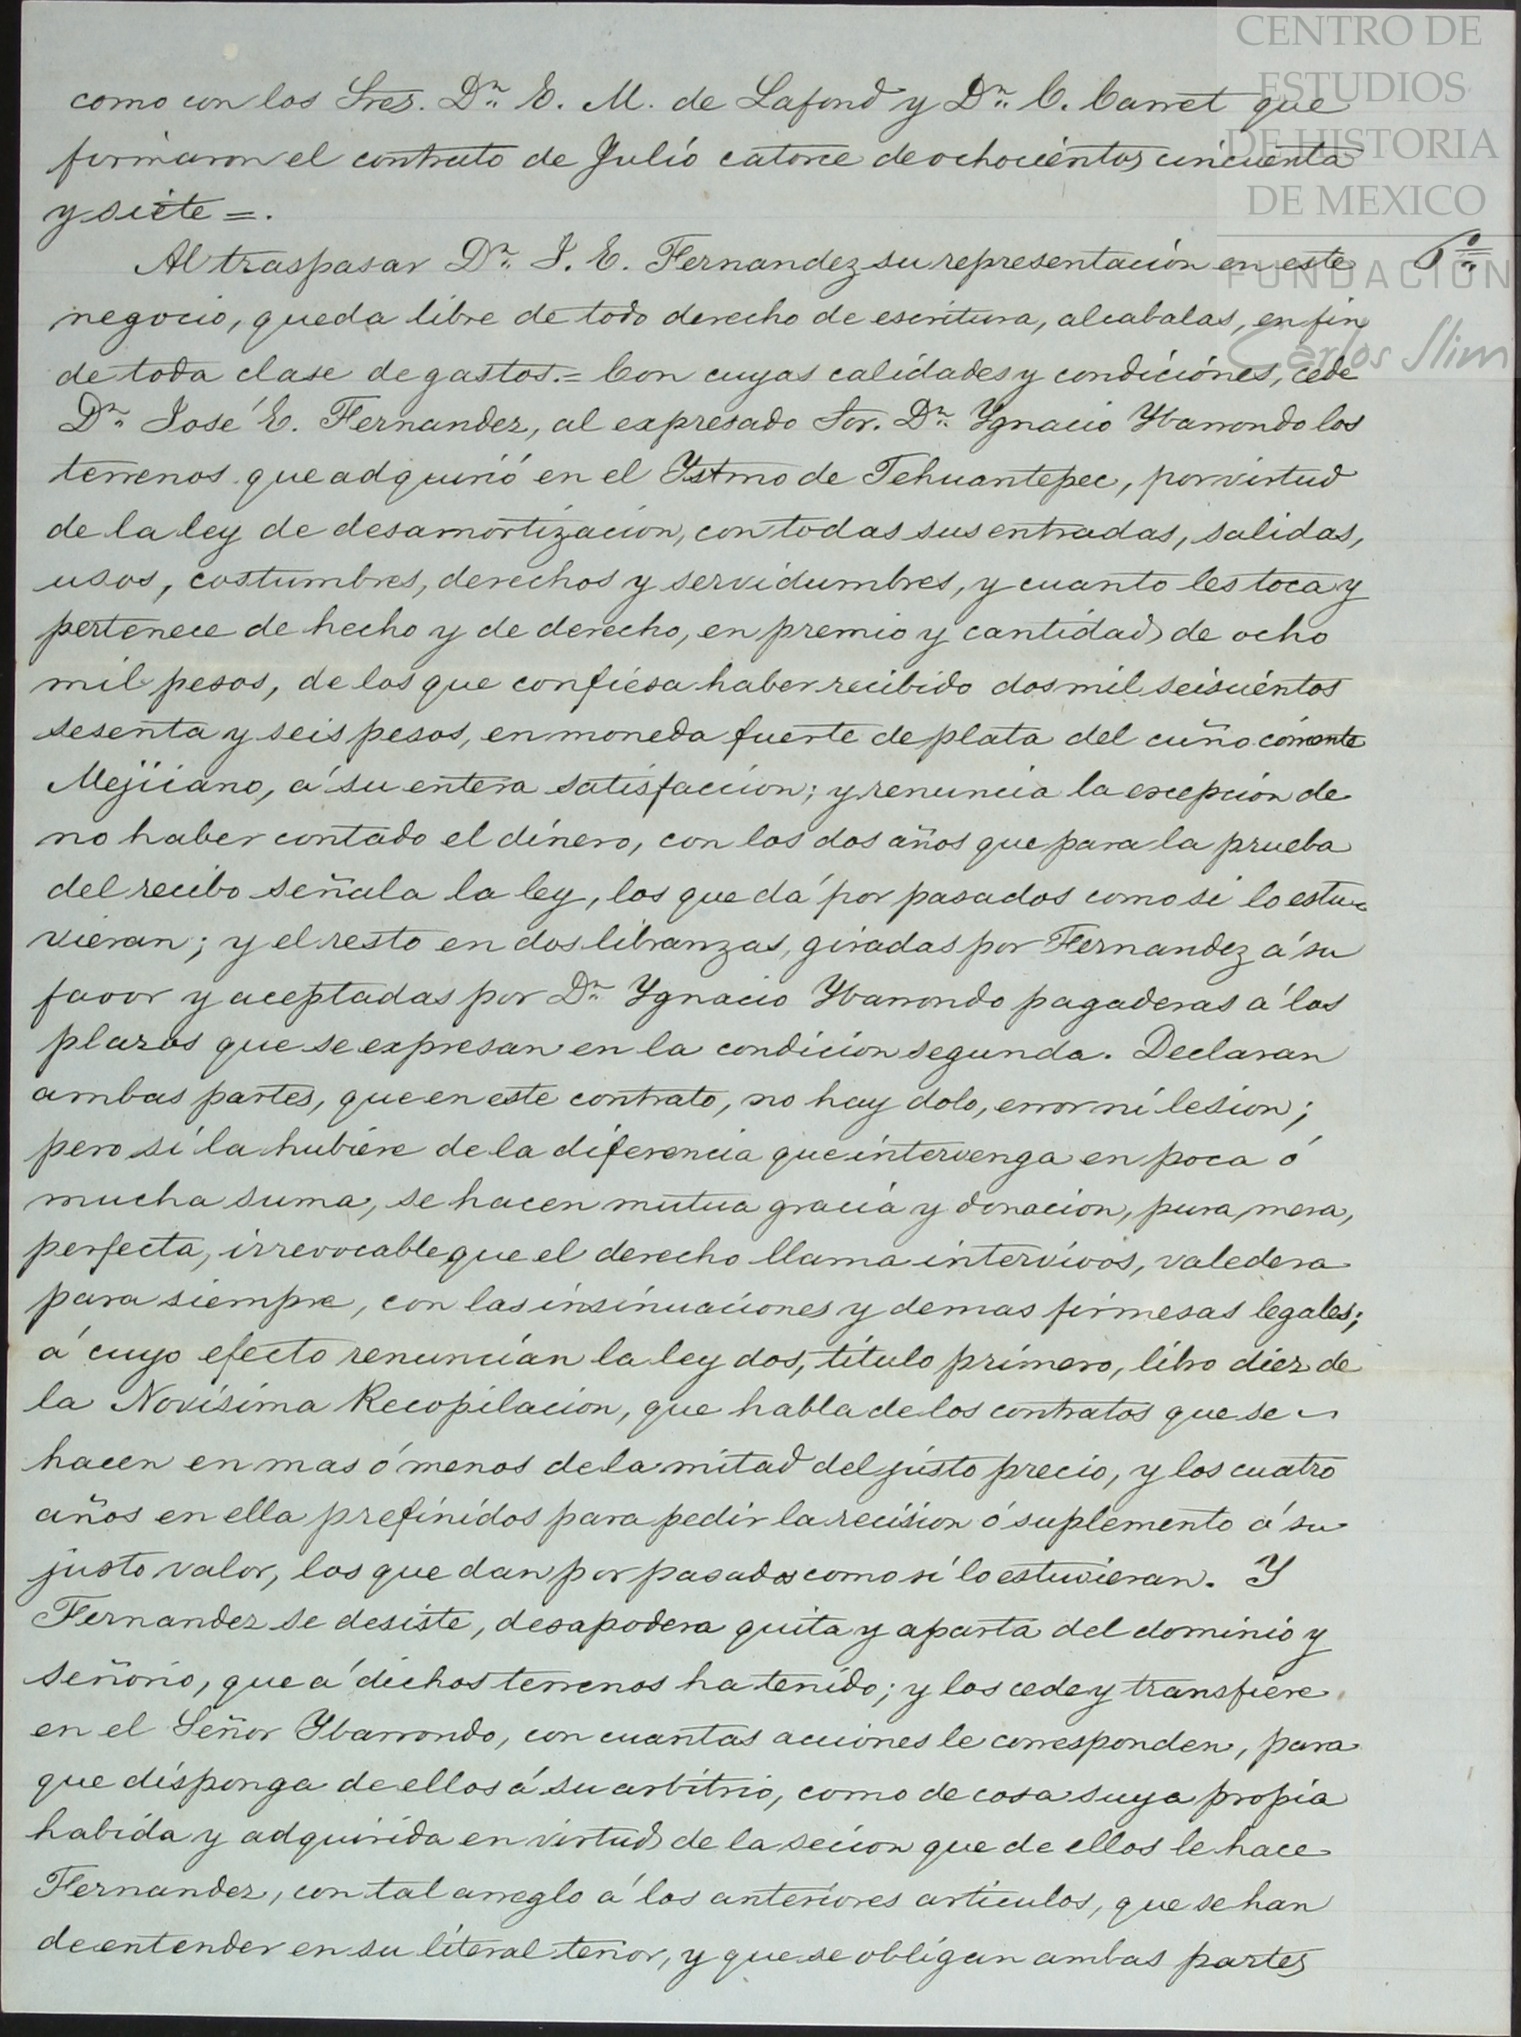 CENTRO DE
ESTUDIOS
DE HISTORIA
DE MEXICO
FUNDACIÓN
Carlos Slim
como con los Sres. Dn. E. M. de Lafond y Dn. C. Carret que
firmaron el contrato de Julio catorce de ochocientos cincuenta
y siete =.
6ª
Al traspasar Dn. J. E. Fernandez su representación en este
negocio, queda libre de todo derecho de escritura, alcabalas, en fin
de toda clase de gastos. = Con cuyas calidades y condiciónes, cede
Dn. José E. Fernandez, al expresado Sor. Dn. Ygnacio Ybarrondo los
terrenos que adquirió en el Ystmo de Tehuantepec, por virtud
de la ley de desamortizacion, con todas sus entradas, salidas,
usos, costumbres, derechos y servidumbres, y cuanto les toca y
pertenece de hecho y de derecho, en premio y cantidad de ocho
mil pesos, de los que confiesa haber recibido dos mil seiscientos
sesenta y seis pesos, en moneda fuerte de plata del cuño corriente
Mejicano, á su entera satisfaccion; y renuncia la escepcion de
no haber contado el dinero, con los dos años que para la prueba
del recibo señala la ley, los que dá por pasados como si lo estu-
vieran; y el resto en dos libranzas, giradas por Fernandez á su
favor y aceptadas por Dn. Ygnacio Ybarrondo pagaderas á los
plazos que se expresan en la condicion segunda. Declaran
ambas partes, que en este contrato, no hay dolo, error ni lesion;
pero si la hubiere de la diferencia que intervenga en poca ó
mucha suma, se hacen mutua gracia y donacion, pura, mera,
perfecta, irrevocable que el derecho llama intervivos, valedera
para siempre, con las insinuaciones y demas firmesas legales;
á cuyo efecto renuncian la ley dos, titulo primero, libro diez de
la Novísima Recopilacion, que habla de los contratos que se
hacen en mas ó menos de la mitad del justo precio, y los cuatro
años en ella prefinidos para pedir la recision ó suplemento á su
justo valor, los que dan por pasados como si lo estuvieran. Y
Fernandez se desiste, desapodera quita y aparta del dominio y
señorio, que á dichos terrenos ha tenido; y los cede y transfiere
en el Señor Ybarrondo, con cuantas acciones le corresponden, para
que disponga de ellos á su arbitrio, como de cosa suya propia
habida y adquirida en virtud de la secion que de ellos le hace
Fernandez, con tal arreglo á los anteriores articulos, que se han
de entender en su literal tenor, y que se obligan ambas partes